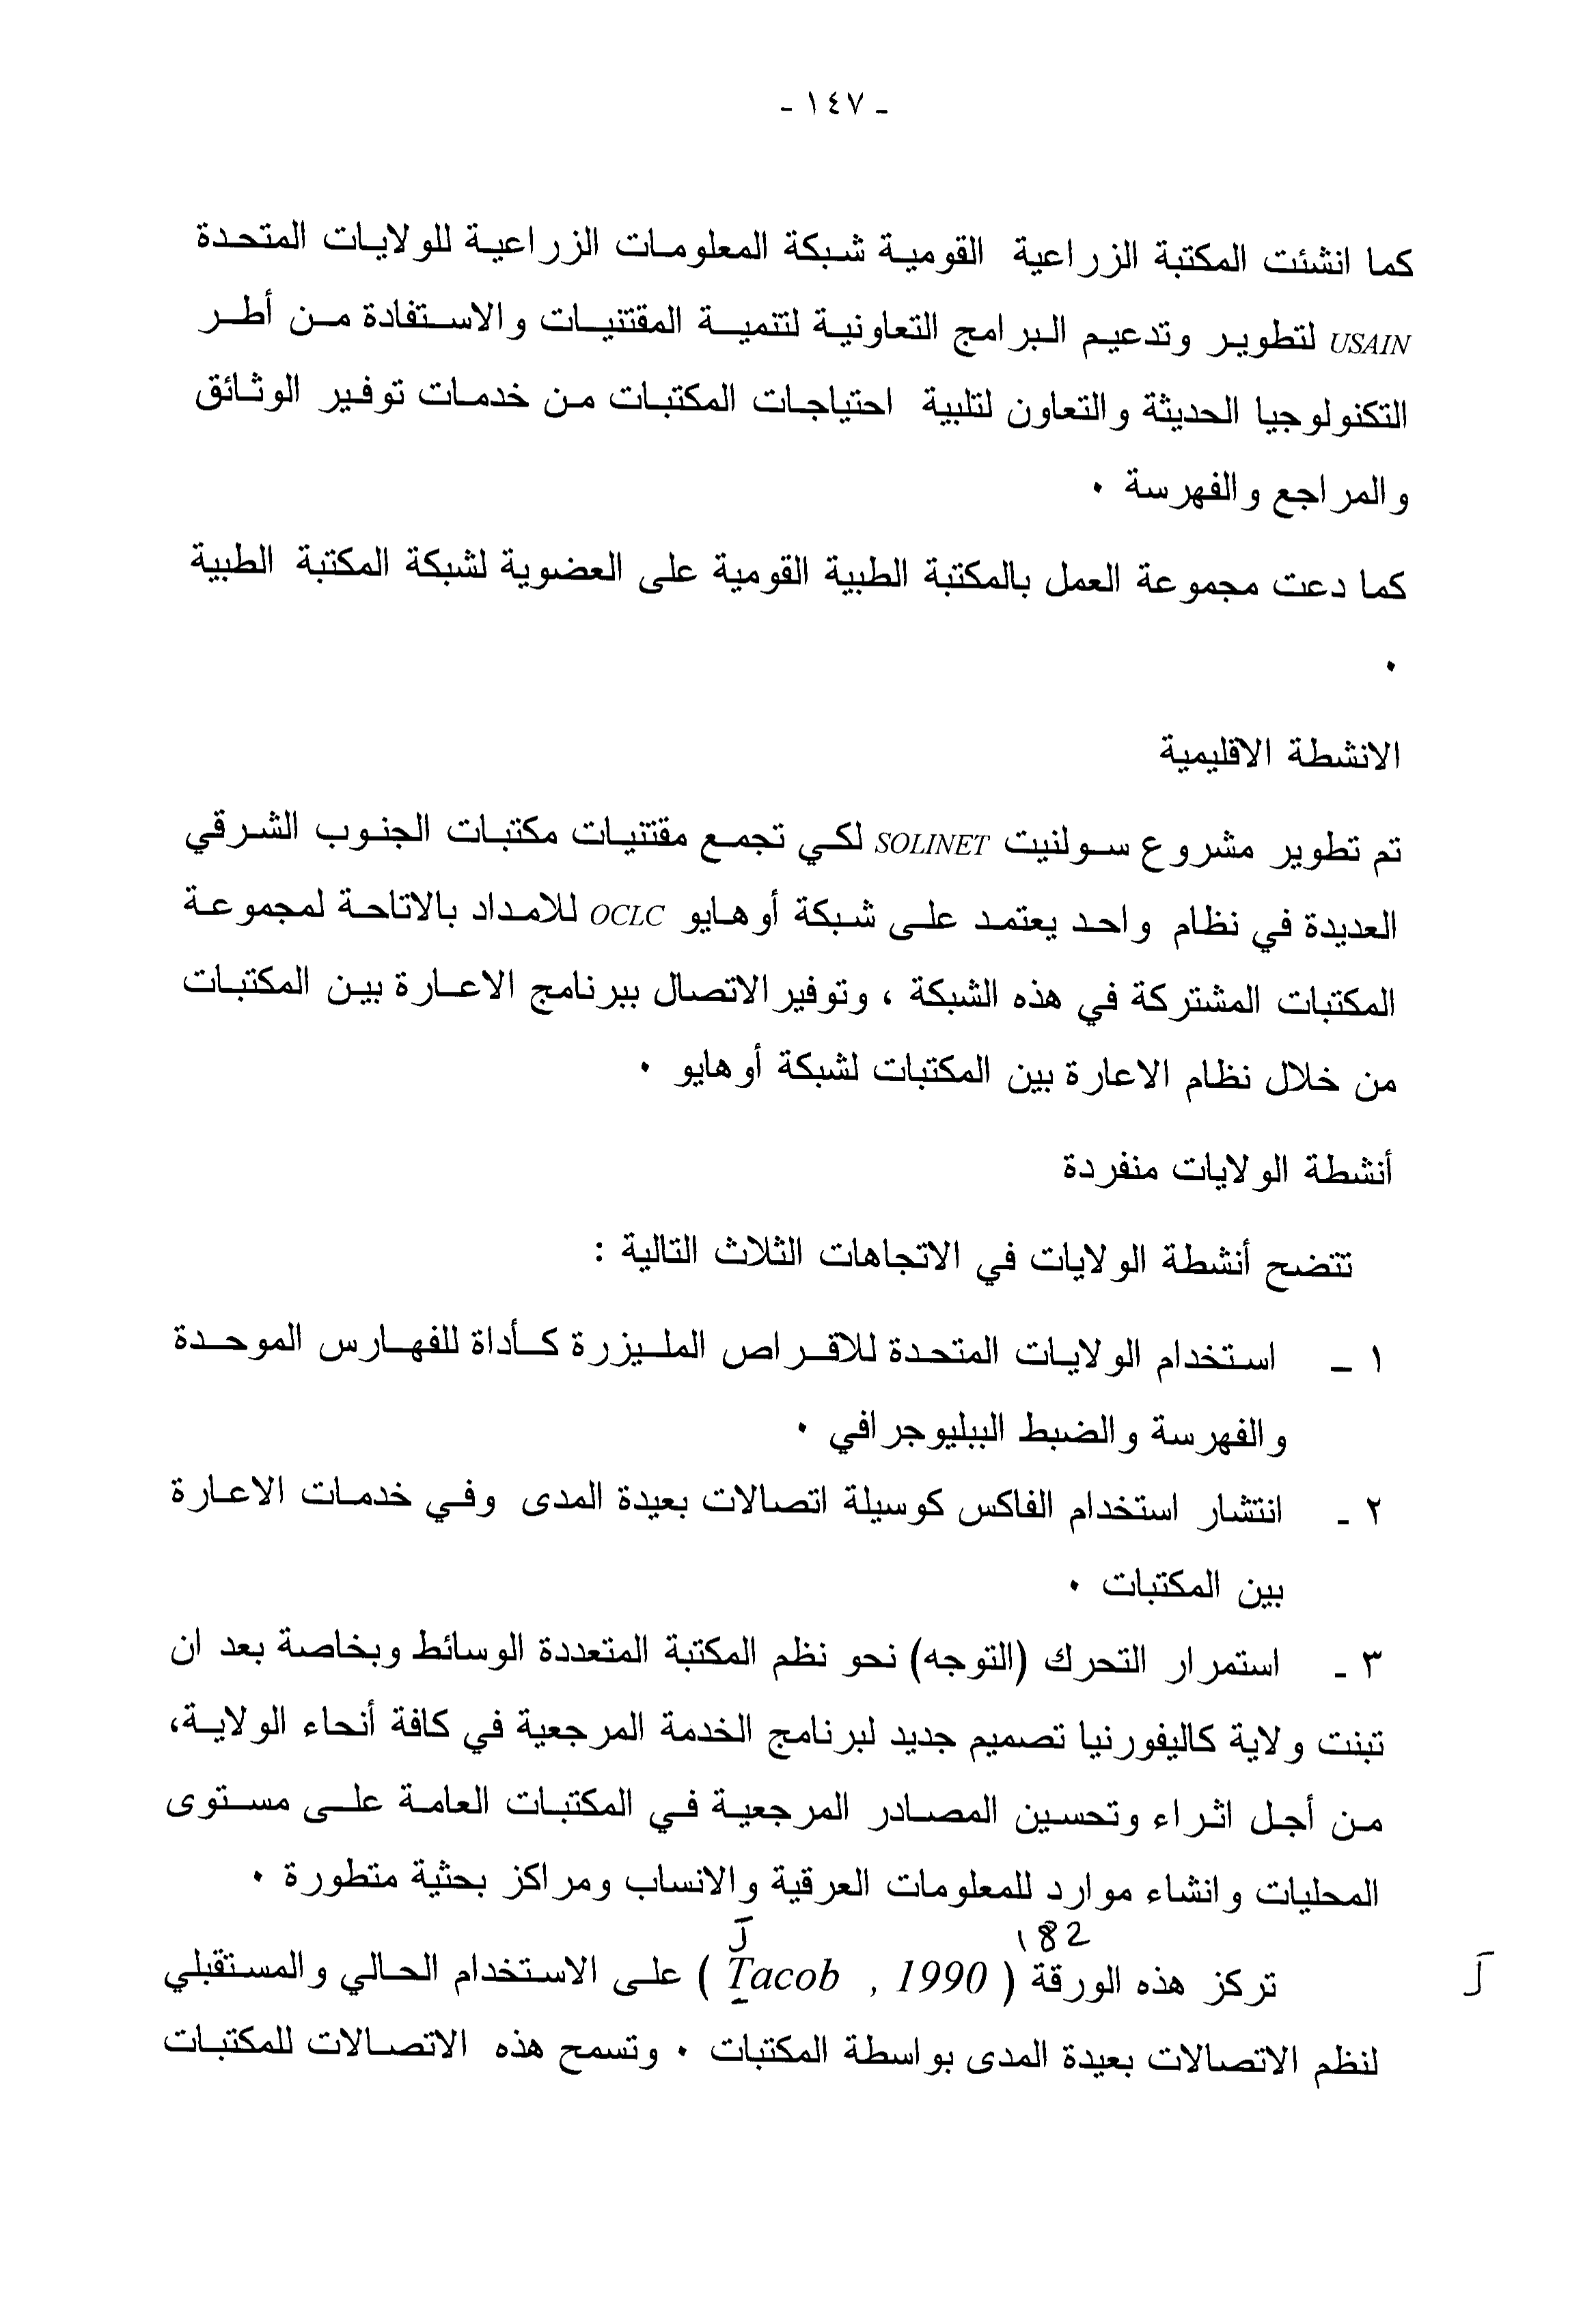 - ١٤٧ -
كما انشئت المكتبة الزراعية القومية شبكة المعلومات الزراعية للولايات المتحدة
USAIN لتطوير وتدعيم البرامج التعاونية لتنمية المقتنيات والاستفادة من أطر
التكنولوجيا الحديثة والتعاون لتلبية احتياجات المكتبات من خدمات توفير الوثائق
والمراجع والفهرسة ٠
كما دعت مجموعة العمل بالمكتبة الطبية القومية على العضوية لشبكة المكتبة الطبية
٠
الانشطة الاقليمية
تم تطوير مشروع سولنيت SOLINET لكي تجمع مقتنيات مكتبات الجنوب الشرقي
العديدة في نظام واحد يعتمد على شبكة أوهايو OCLC للامداد بالاتاحة لمجموعة
المكتبات المشتركة في هذه الشبكة ، وتوفير الاتصال ببرنامج الاعارة بين المكتبات
من خلال نظام الاعارة بين المكتبات لشبكة أوهايو ٠
أنشطة الولايات منفردة
تتضح أنشطة الولايات في الاتجاهات الثلاث التالية :
١ - استخدام الولايات المتحدة للاقراص المليزرة كأداة للفهارس الموحدة
والفهرسة والضبط الببليوجرافي ٠
٢ - انتشار استخدام الفاكس كوسيلة اتصالات بعيدة المدى وفي خدمات الاعارة
بين المكتبات ٠
٣ - استمرار التحرك (التوجه) نحو نظم المكتبة المتعددة الوسائط وبخاصة بعد ان
تبنت ولاية كاليفورنيا تصميم جديد لبرنامج الخدمة المرجعية في كافة أنحاء الولاية،
من أجل اثراء وتحسين المصادر المرجعية في المكتبات العامة على مستوى
المحليات وانشاء موارد للمعلومات العرقية والانساب ومراكز بحثية متطورة ٠
182 J
تركز هذه الورقة ( Tacob , 1990 ) على الاستخدام الحالي والمستقبلي J
لنظم الاتصالات بعيدة المدى بواسطة المكتبات ٠ وتسمح هذه الاتصالات للمكتبات